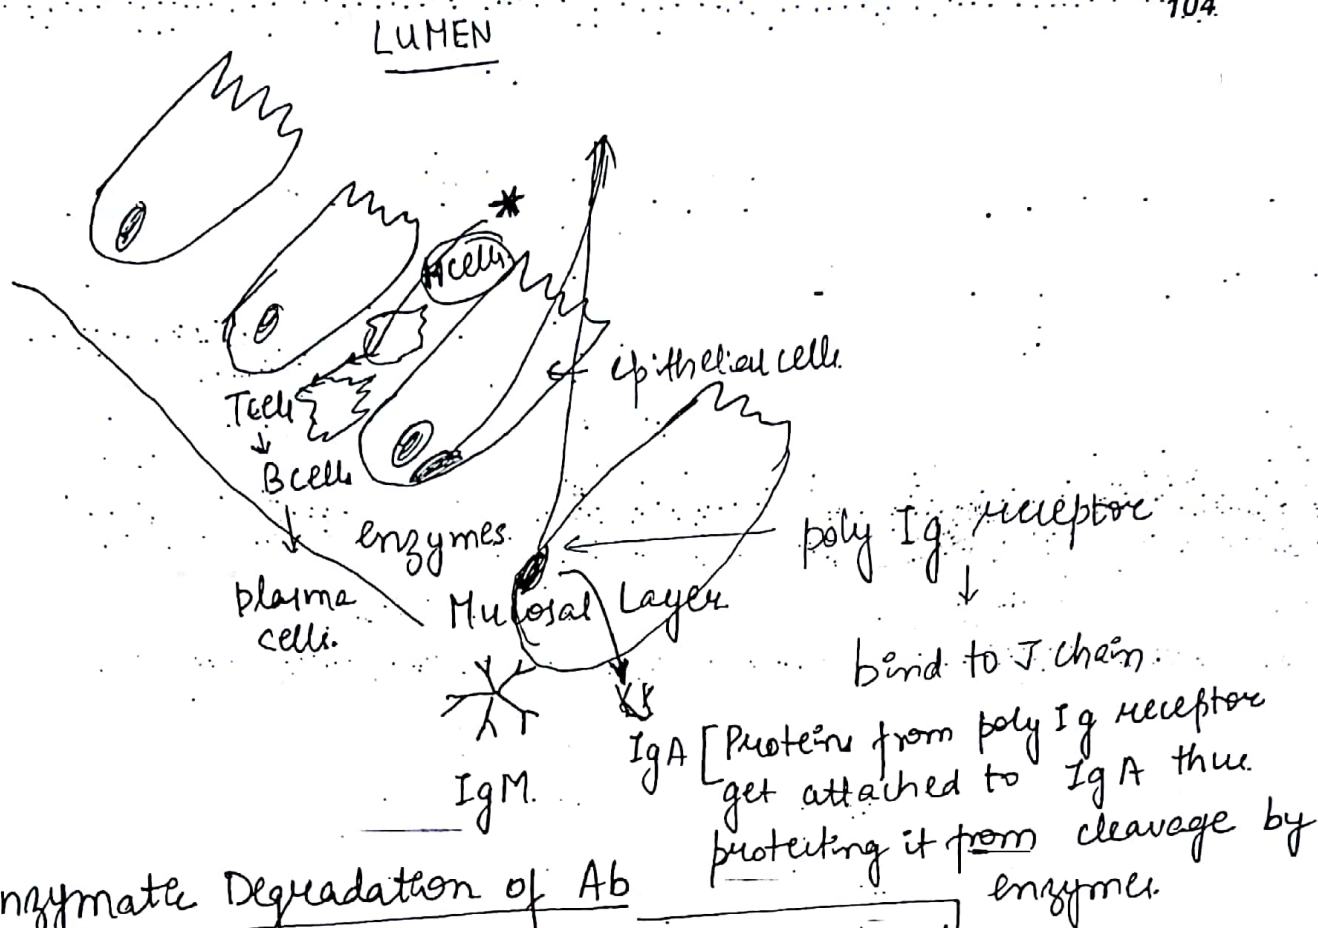 104
LUMEN
M cells
epithelial cells
T cells
↓
B cells
↓
enzymes
poly Ig receptor
↓
plasma
cells.
Mucosal Layer
bind to J. chain.
IgM.
IgA [Proteins from poly Ig receptor
get attached to IgA thus
protecting it from cleavage by
enzymes.
nzymatic Degradation of Ab